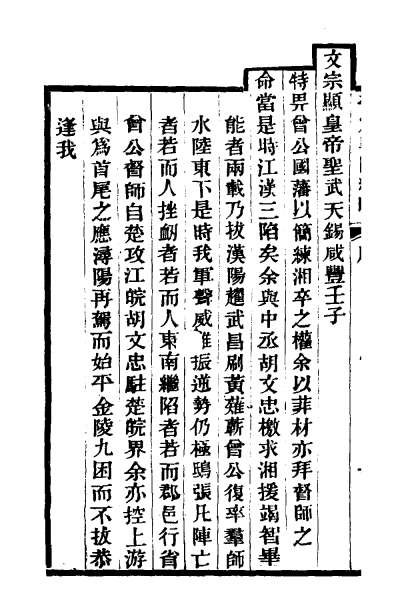 文宗顯皇帝聖武天錫咸豐壬子
特畀曾公國藩以簡練湘卒之權余以菲材亦拜督師之
命當是時江漢三陷矣余與中丞胡文忠檄求湘援竭智畢
能者兩載乃拔漢陽躍武昌刷黃薙蘄曾公復率羣師
水陸東下是時我軍聲威雖振逆勢仍極鴟張凡陣亡
者若而人挫衂者若而人東南繼陷者若而郡邑行省
曾公督師自楚攻江皖胡文忠駐楚皖界余亦控上游
與爲首尾之應潯陽再駕而始平金陵九困而不拔恭
逢我